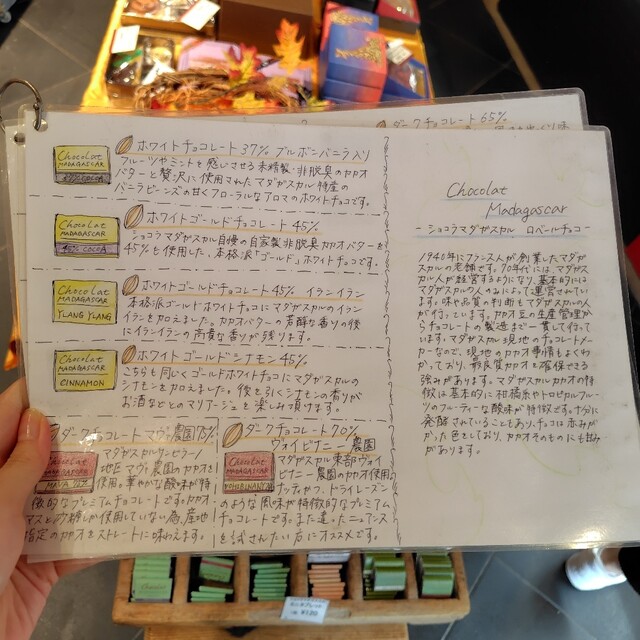 ダークチョコレート65%
Chocolat
MADAGASCAR
37% COCOA
ホワイトチョコレート37% ブルボンバニラ入り
フルーツやミントを感じさせる未精製・非脱臭のカカオ
バターと贅沢に使用されたマダガスカル特産の
バニラビーンズの甘くフローラルなアロマのホワイトチョコです。
Chocolat
MADAGASCAR
45% COCOA
ホワイトゴールドチョコレート45%
ショコラマダガスカル自慢の自家製非脱臭カカオバターを
45%も使用した、本格派「ゴールド」ホワイトチョコです。
Chocolat
MADAGASCAR
YLANG YLANG
ホワイトゴールドチョコレート45% イランイラン
本格派ゴールドホワイトチョコにマダガスカルのイラン
イランを加えました。カカオバターの芳醇な香りの後
にイランイランの高貴な香りが残ります。
Chocolat
MADAGASCAR
CINNAMON
ホワイトゴールドシナモン45%
こちらも同じくゴールドホワイトチョコにマダガスカルの
シナモンを加えました。後を引くシナモンの香りが
お酒などとのマリアージュを楽しみ頂けます。
ダークチョコレートマヴァ農園75%
Chocolat
MADAGASCAR
マダガスカルサンビラノ
地区マヴァ農園のカカオを
使用。華やかな酸味が特
徴的なプレミアムチョコレートです。カカオ
マスと砂糖しか使用していない為、産地
指定のカカオをストレートに味わえます。
ダークチョコレート70%
ヴォイビナニー農園
Chocolat
MADAGASCAR
VOHIBINANY
マダガスカル東部ヴォイ
ビナニー農園のカカオ使用。
ナッティカつ、ドライレーズン
のような風味が特徴的なプレミアム
チョコレートです。また違ったニュアンス
を試されたい方にオススメです。
Chocolat
Madagascar
- ショコラマダガスカル ロベールチョコ -
1940年にフランス人が創業したマダガ
スカルの老舗です。70年代には、マダガス
カル人が経営するようになり、基本的には
マダガスカル人のみによって運営されてい
ます。味や品質の判断もマダガスカルの人
が行っています。カカオ豆の生産管理か
らチョコレートの製造まで一貫して行って
います。マダガスカル現地のチョコレートメー
カーなので、現地のカカオ事情もよくわ
かっており、最良質カカオを確保できる
強みがあります。マダガスカルカカオの特
徴は基本的に柑橘系やトロピカルフル
ーツのフルーティーな酸味が特徴です。十分に
発酵されていることもあり、チョコは赤みが
かった色をしており、カカオそのものにも甘み
があります。
ミニタブレット
¥120